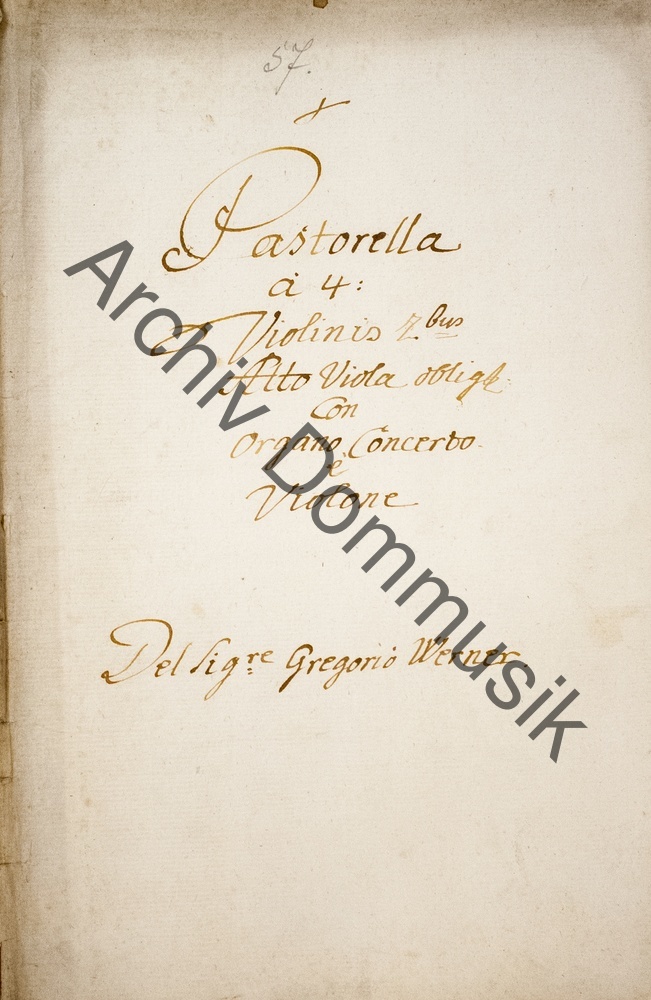 57.
Pastorella
à 4:
Violinis 2bus
Alto Viola oblig
Con
Organo Concerto
è
Violone
Del Sigre Gregorio Werner.
Archiv Dommusik